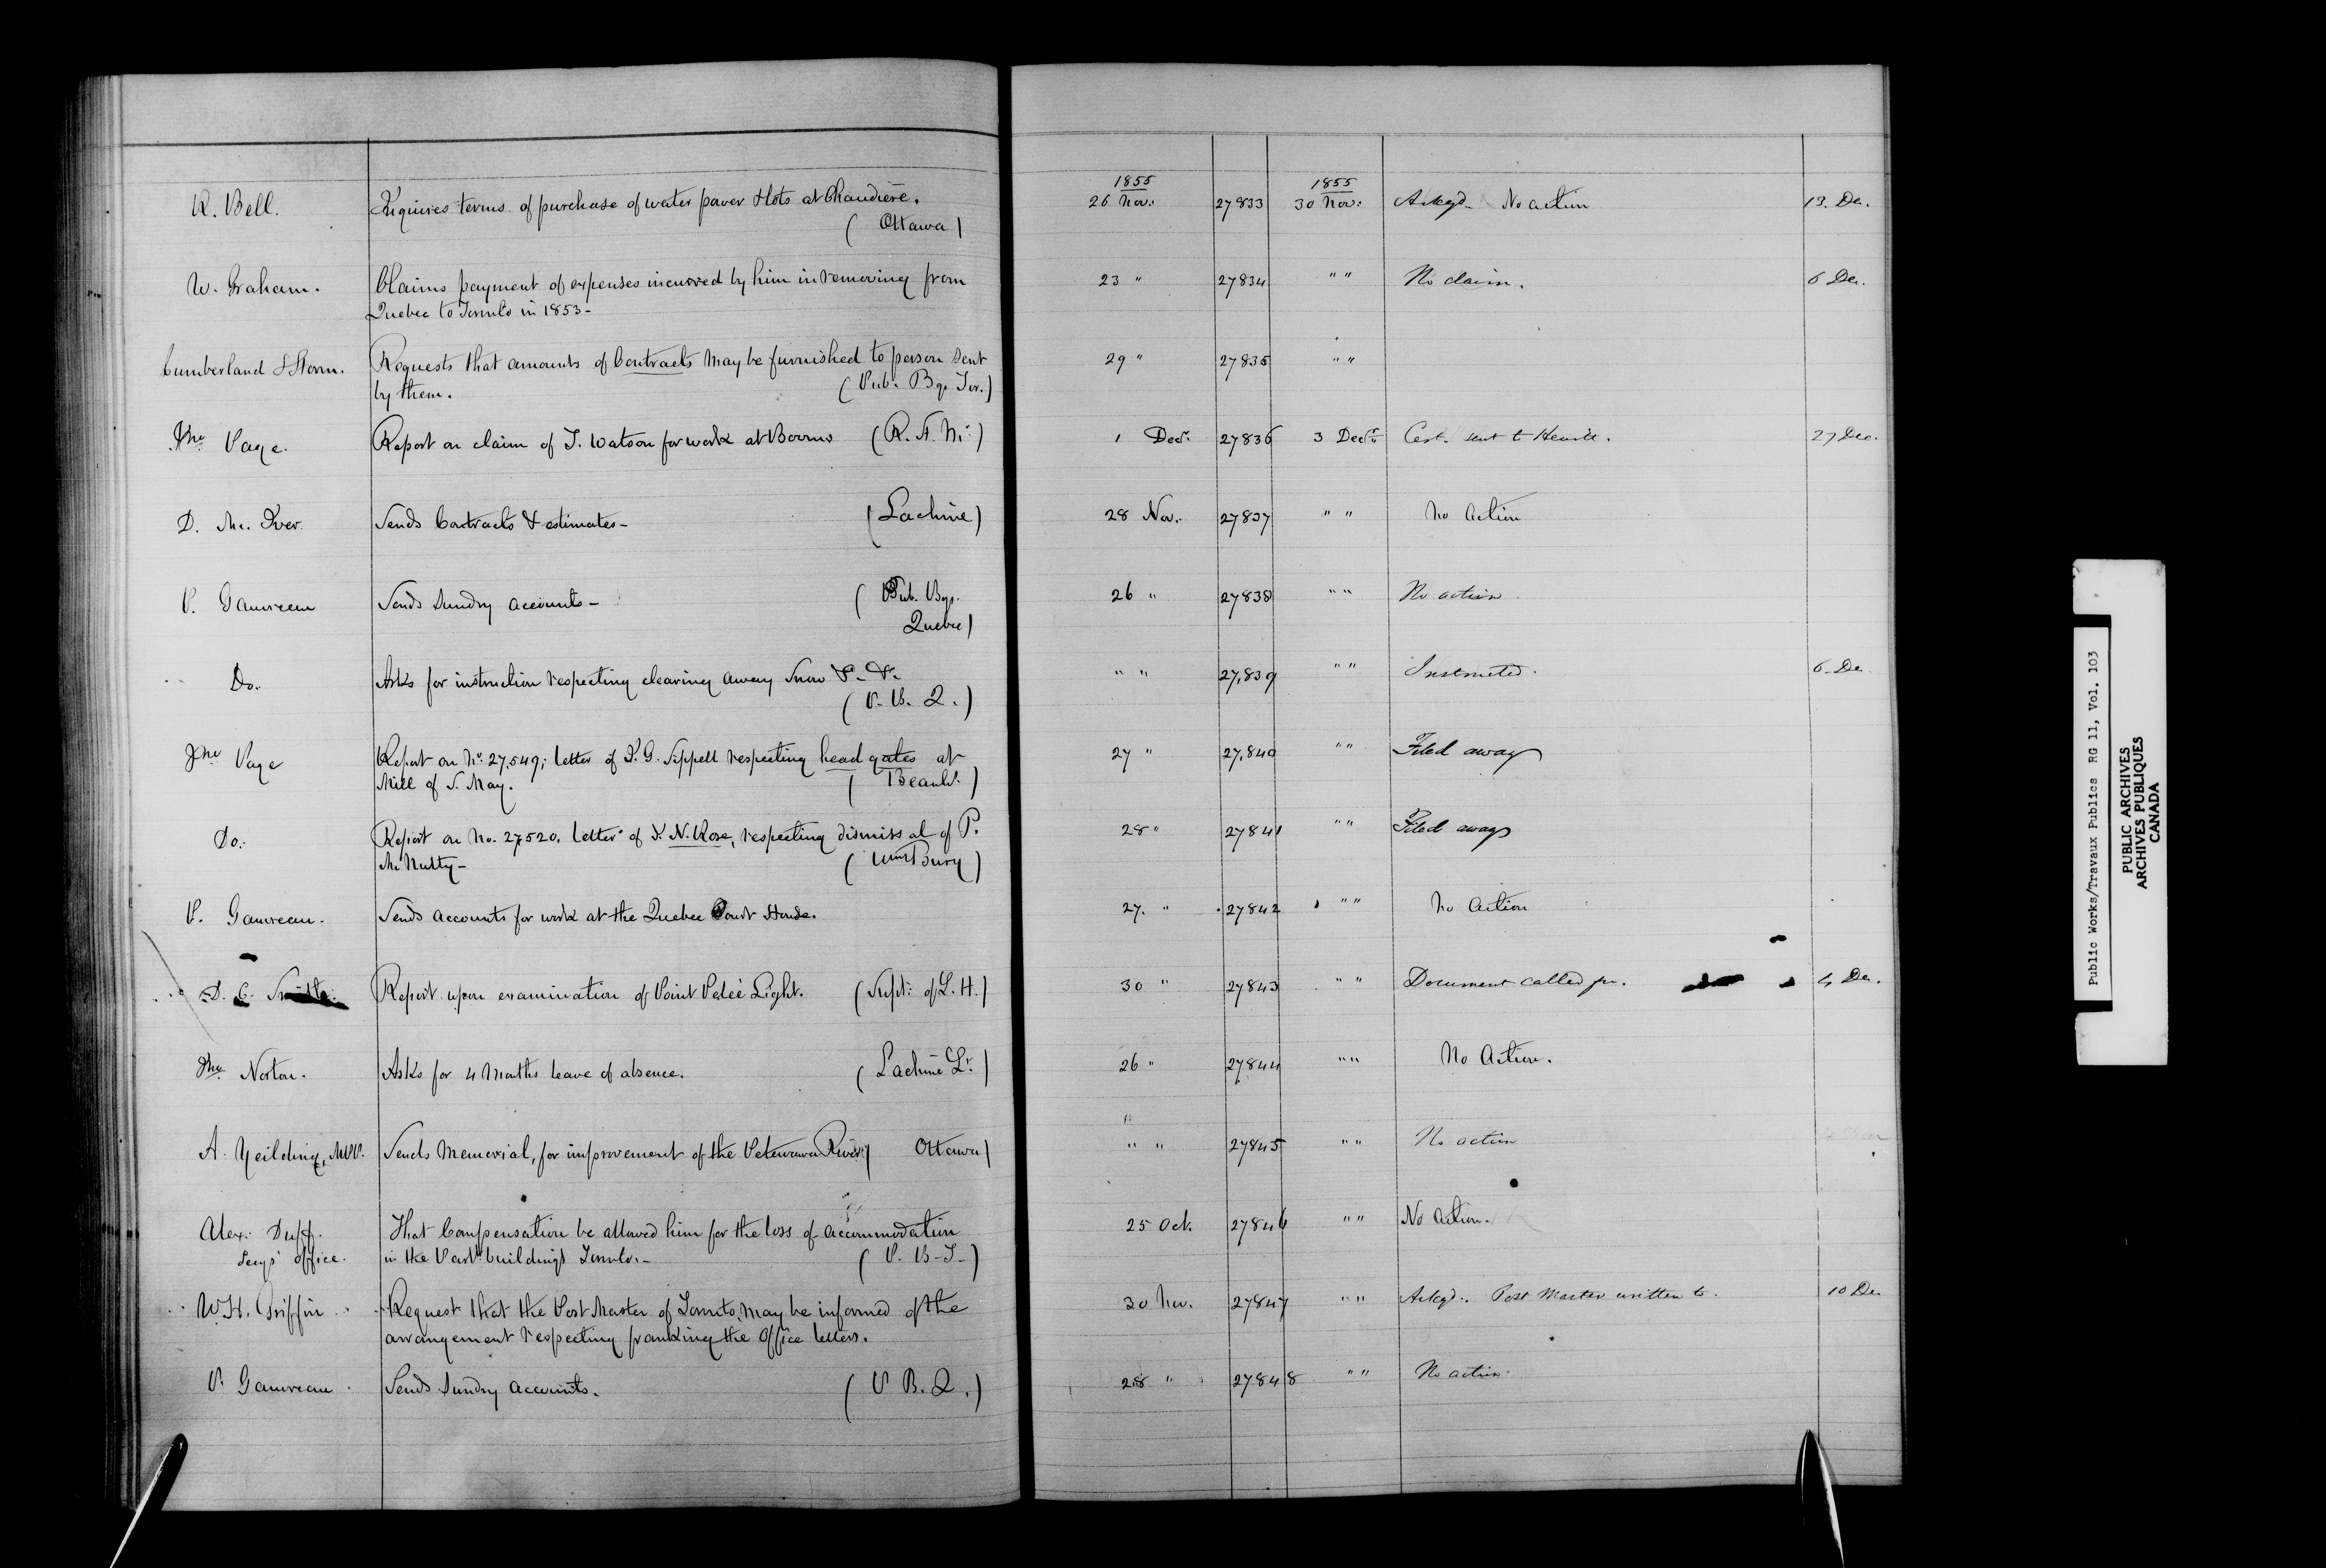 1855 1855
R. Bell. Enquires terms of purchase of water power & lots at Chaudière. 26 Nov: 27833 30 Nov: Ackgd. No action 13. De.
( Ottawa )
W. Graham. Claims payment of expenses incurred by him in removing from 23 " 27834 " " No claim. 6 De.
Quebec to Toronto in 1853-
Cumberland & Storm. Requests that amounts of Contracts may be furnished to person sent 29 " 27835 " "
by them. (Pub. Bgs Tor.)
Jno Page. Report on claim of T. Watson for work at (R. A. M:) 1 Decr. 27836 3 Decr. Cert. sent to 27 Dec.
D. Mc. Iver. Sends Contracts & estimates- (Lachine) 28 Nov. 27837 " " No Action
P. Gauvreau Sends Sundry accounts- ( Pub. Bgs. 26 " 27838 " " No action.
Quebec)
Do. Asks for instruction respecting clearing away Snow &c. &c. " " 27,839 " " Instructed. 6. De
( P. B. Q. )
Jno Page Report on No. 27,549; letter of T. G. Sippell respecting head gates at 27 " 27,840 " " Filed away
Mill of S. May. ( Beauhs. )
Do. Report on No. 27520. Letter of J. N. Rose, respecting dismissal of P. 28 " 27841 " " Filed away
Mc Nulty- ( WmsBurg )
P. Gauvreau. Sends accounts for work at the Quebec Court House. 27. " 27842 " " No Action
D. C. Smith. Report upon examination of Point Peleé Light. (Supt: of L. H.) 30 " 27843 " " Document called for. 4 De.
Jno Norton. Asks for 4 Months leave of absence. ( Lachine ) 26 " 27844 " " No Action.
A. Yeilding, MPP. Sends Memorial, for improvement of the Petewawa River ( Ottawa) " " 27845 " " No action
Alex: Duff. That Compensation be allowed him for the loss of accommodation 25 Oct. 27846 " " No Action.
Secys' office. in the Part. buildings Toronto.- ( P. B-T- )
W. H. Griffin Request that the Post Master of Toronto, may be informed of the 30 Nov. 27847 " " Ackgd. Post Master written to. 10 De.
arrangement respecting franking the Office letters.
P. Gauvreau. Sends Sundry accounts. ( P B. Q. ) 28 " 27848 " " No action
Public Works/Travaux Publics RG 11, Vol. 103
PUBLIC ARCHIVES
ARCHIVES PUBLIQUES
CANADA